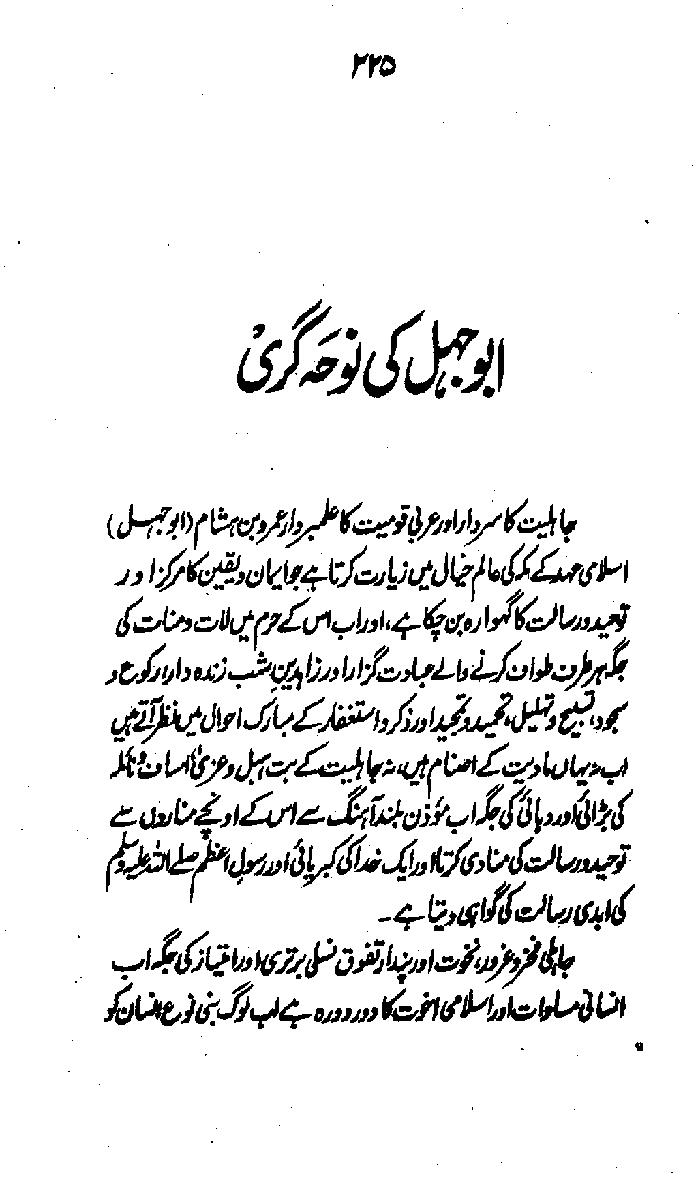 ۲۲۵
ابوجہل کی نوحہ گری
جاہلیت کا سردار اور عربی قومیت کا علمبردار عمرو بن ہشام (ابوجہل)
اسلامی عہد کے مکہ کی عالم خیال میں زیارت کرتا ہے جو ایمان و یقین کا مرکز اور
توحید و رسالت کا گہوارہ بن چکا ہے، اور اب اس کے حرم میں لات و منات کی
جگہ ہر طرف طواف کرنے والے عبادت گزار اور زاہدینِ شب زندہ دار اور رکوع و
سجود، تسبیح و تہلیل، تحمید و تمجید اور ذکر و استغفار کے مبارک احوال میں نظر آتے ہیں
اب نہ یہاں مادیت کے اصنام ہیں، نہ جاہلیت کے بت ہبل و عزیٰ اساف و نائلہ
کی بڑائی اور دہائی کی جگہ اب مؤذن بلند آہنگ سے اس کے اونچے مناروں سے
توحید و رسالت کی منادی کرتا اور ایک خدا کی کبریائی اور رسول اعظم صلے اللہ علیہ وسلم
کی ابدی رسالت کی گواہی دیتا ہے۔
جاہلی فخر و غرور، نخوت اور پندار تفوق نسلی برتری اور امتیاز کی جگہ اب
انسانی مساوات اور اسلامی اخوت کا دور دورہ ہے اب لوگ بنی نوع انسان کو